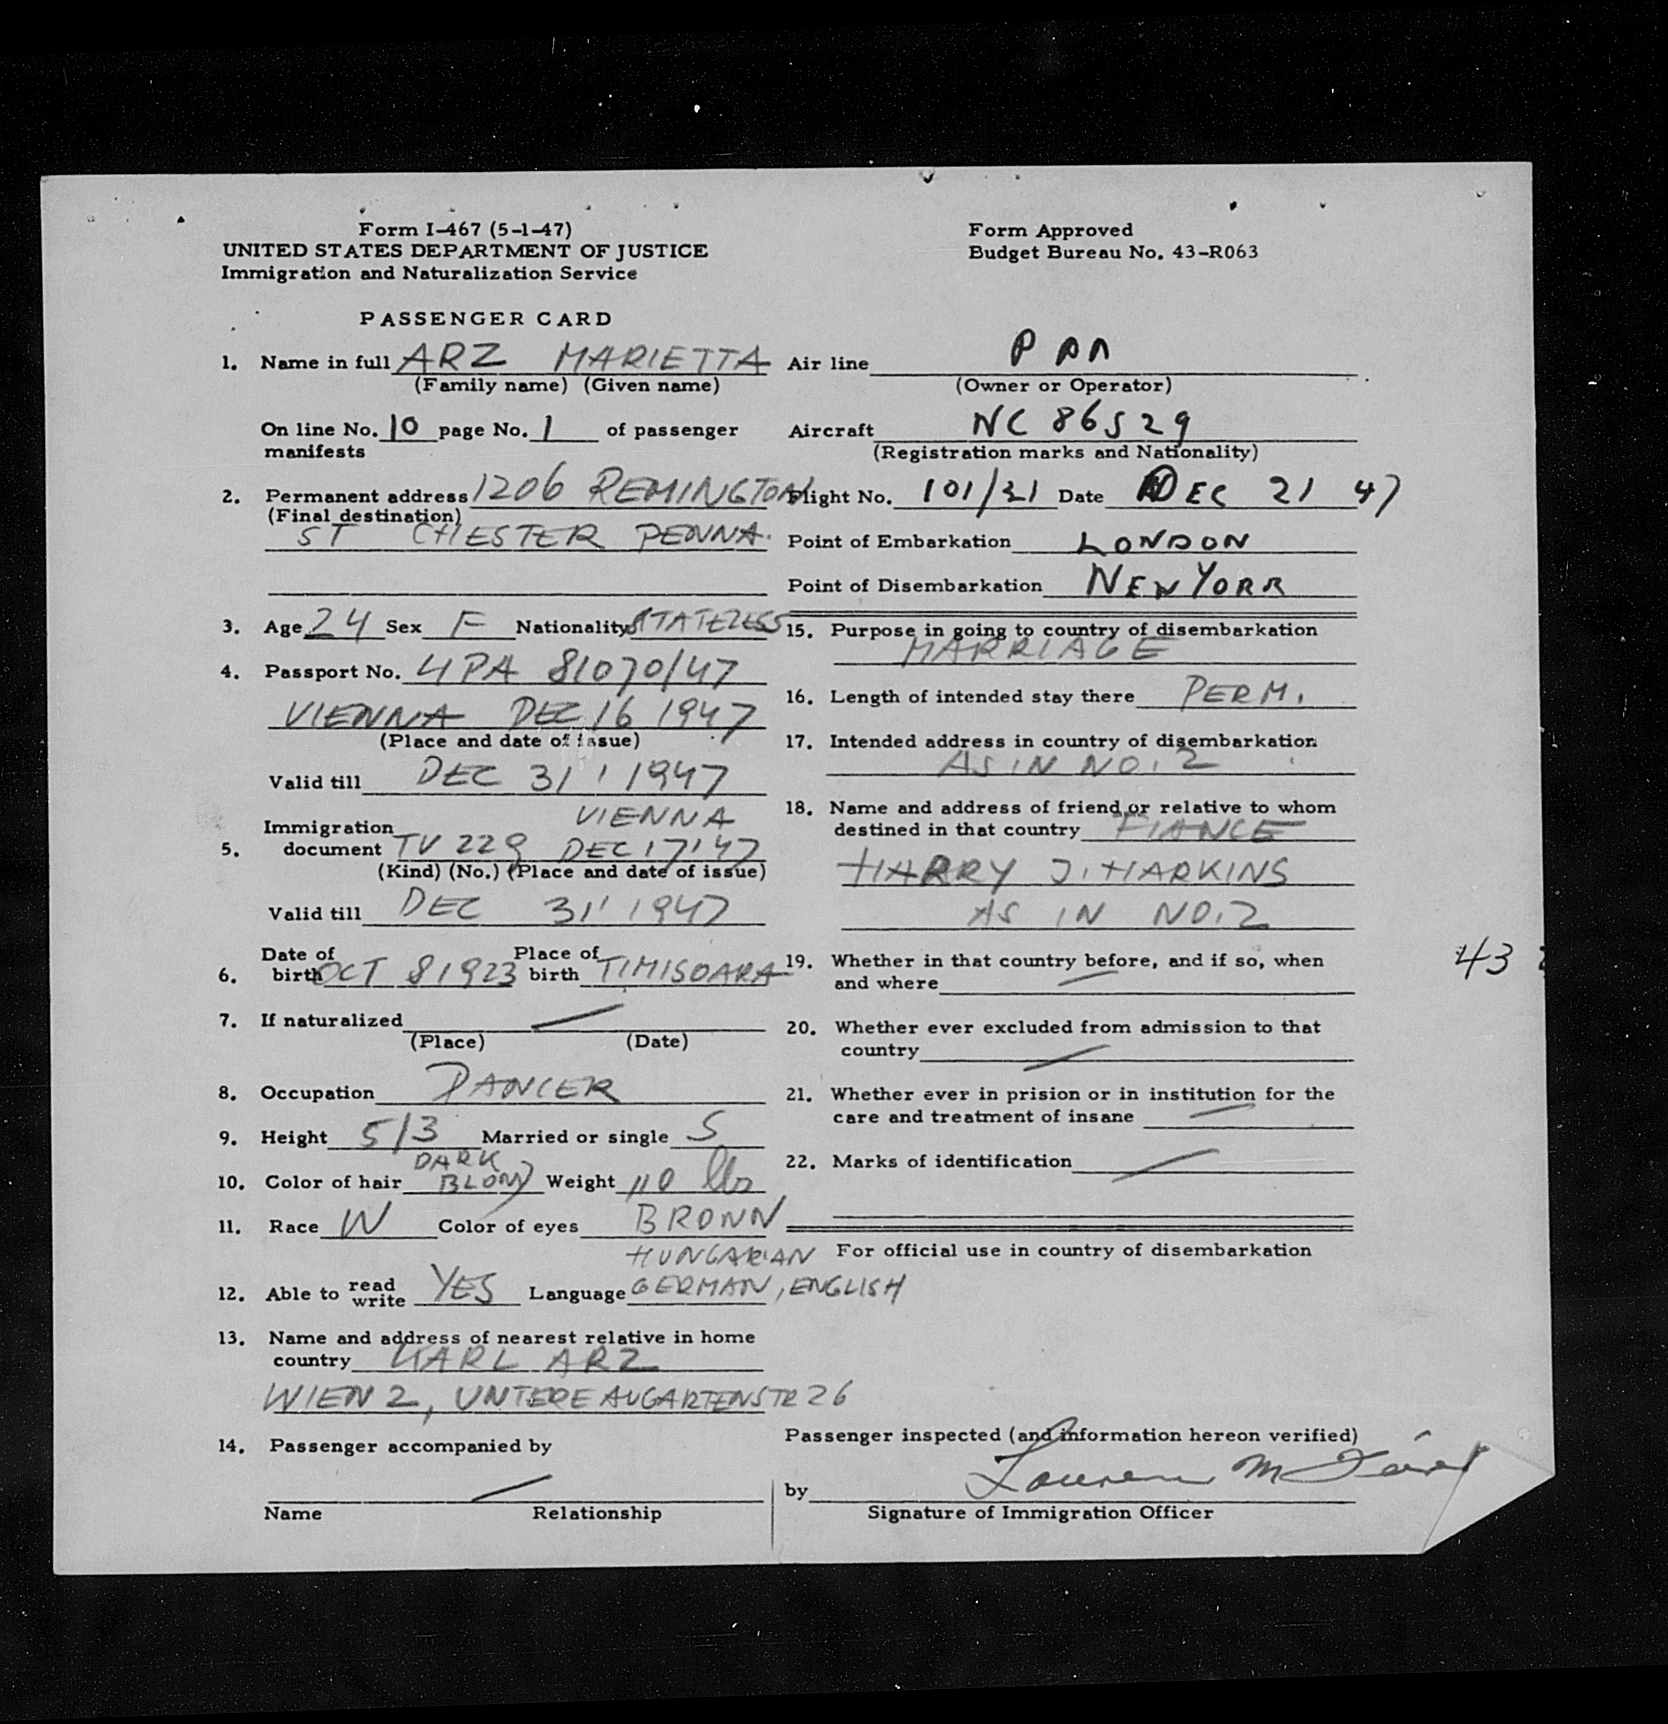 Form I-467 (5-1-47)
UNITED STATES DEPARTMENT OF JUSTICE
Immigration and Naturalization Service
Form Approved
Budget Bureau No. 43-R063
PASSENGER CARD
1. Name in full ARZ MARIETTA
(Family name) (Given name)
On line No. 10 page No. 1 of passenger
manifests
2. Permanent address 1206 REMINGTON
(Final destination)
ST CHESTER PENNA.
3. Age 24 Sex F Nationality STATELESS
4. Passport No. 4PA 81070/47
VIENNA DEC 16 1947
(Place and date of issue)
Valid till DEC 31, 1947
VIENNA
Immigration
5. document TV 229 DEC 17'47
(Kind) (No.) (Place and date of issue)
Valid till DEC 31' 1947
Date of Place of
6. birth OCT 8 1923 birth TIMISOARA
7. If naturalized /
(Place) (Date)
8. Occupation DANCER
9. Height 5/3 Married or single S
DARK
10. Color of hair BLOND Weight 110 lbs
11. Race W Color of eyes BROWN
HUNGARIAN
12. Able to read write YES Language GERMAN, ENGLISH
13. Name and address of nearest relative in home
country KARL ARZ
WIEN 2, UNTERE AUGARTENSTR 26
14. Passenger accompanied by
/
Name Relationship
Air line PAA
(Owner or Operator)
Aircraft NC 86529
(Registration marks and Nationality)
Flight No. 101/21 Date DEC 21 47
Point of Embarkation LONDON
Point of Disembarkation NEW YORK
15. Purpose in going to country of disembarkation
MARRIAGE
16. Length of intended stay there PERM.
17. Intended address in country of disembarkation
AS IN NO. 2
18. Name and address of friend or relative to whom
destined in that country FIANCE
HARRY J. HARKINS
AS IN NO. 2
19. Whether in that country before, and if so, when
and where /
43
20. Whether ever excluded from admission to that
country /
21. Whether ever in prision or in institution for the
care and treatment of insane /
22. Marks of identification /
For official use in country of disembarkation
Passenger inspected (and information hereon verified)
by
Signature of Immigration Officer